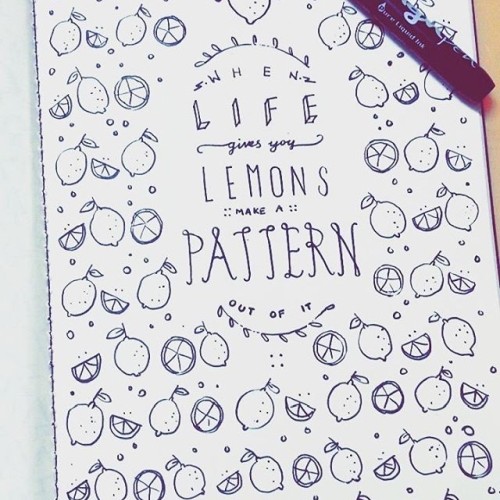 WHEN
LIFE
gives you
LEMONS
:: MAKE A ::
PATTERN
OUT OF IT
Liquid Ink